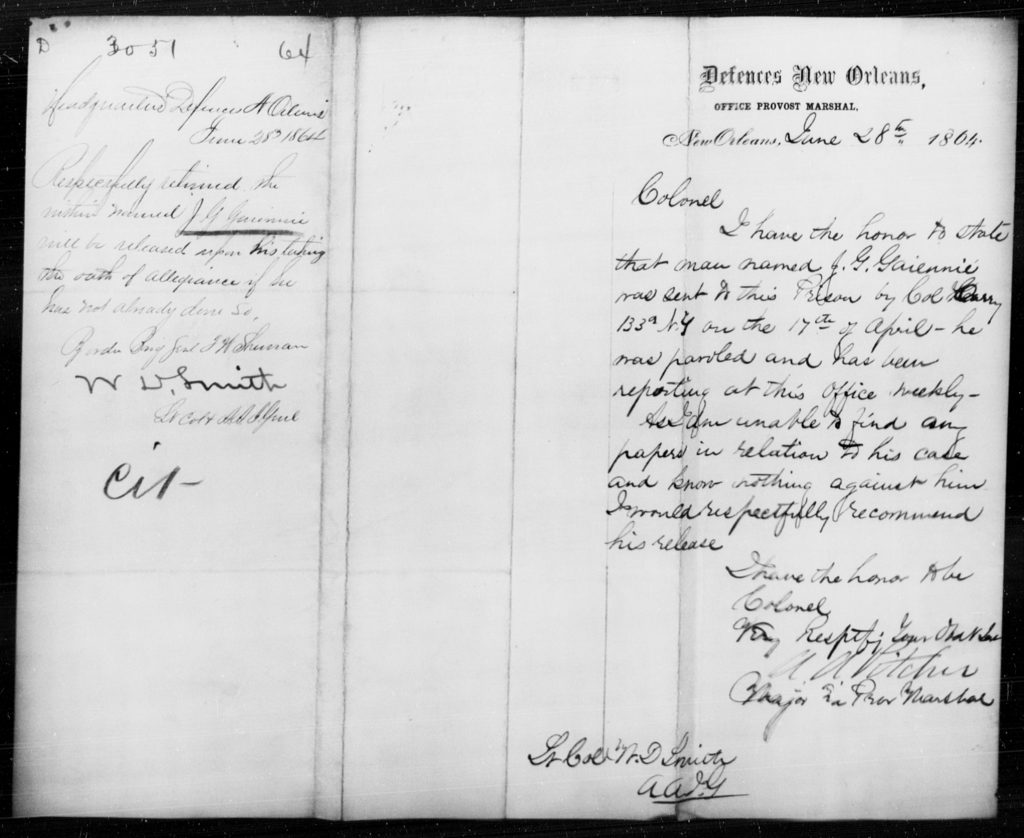 D 3051 64
Headquarters Defences N Orleans
June 28th 1864
Respectfully returned. the
within named J. G. Gaiennie
will be released upon his taking
the oath of allegiance if he
has not already done so,
By order Brig Genl T. W. Sherman
W D. Smith
Lt Col
Cit-
Defences New Orleans,
OFFICE PROVOST MARSHAL,
New Orleans, June 28th 1864.
Colonel
I have the honor to state
that man named J. G. Gaiennie
was sent to this Prison by Col
133d N.Y on the 17th of April - he
was paroled and has been
reporting at this Office weekly -
As I am unable to find any
papers in relation to his case
and know nothing against him
I would respectfully recommend
his release
I have the honor to be
Colonel
Very Resptfy Your Obdt Svt
Major Pro Marshal
Lt Col W. D Smith
A A A G